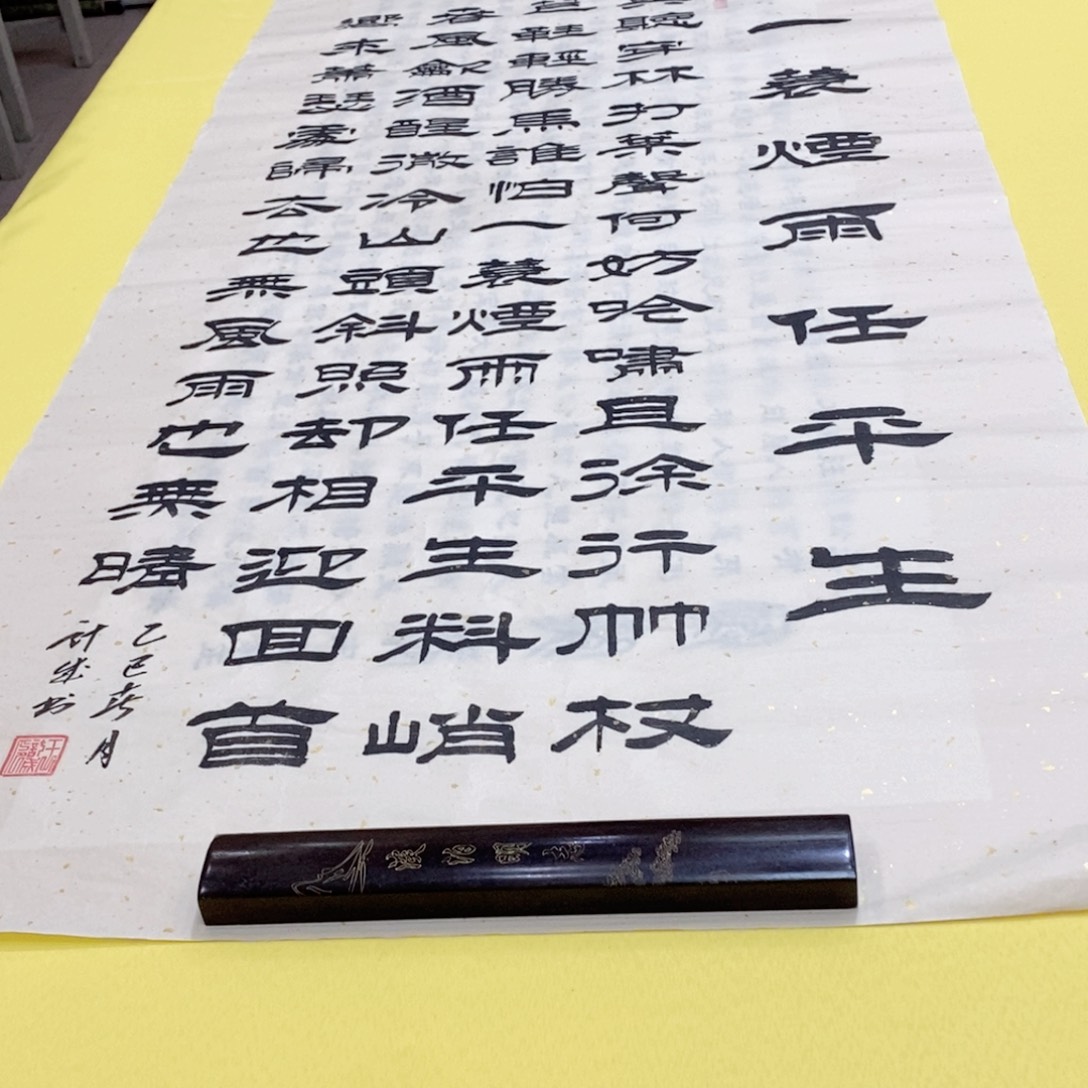 一蓑煙雨任平生
莫聽穿林打葉聲何妨吟嘯且徐行竹杖
芒鞋輕勝馬誰怕一蓑煙雨任平生料峭
春風龡酒醒微冷山頭斜照却相迎回首
嚮来蕭瑟處歸去也無風雨也無晴
乙巳春月
计成书
淡泊明志